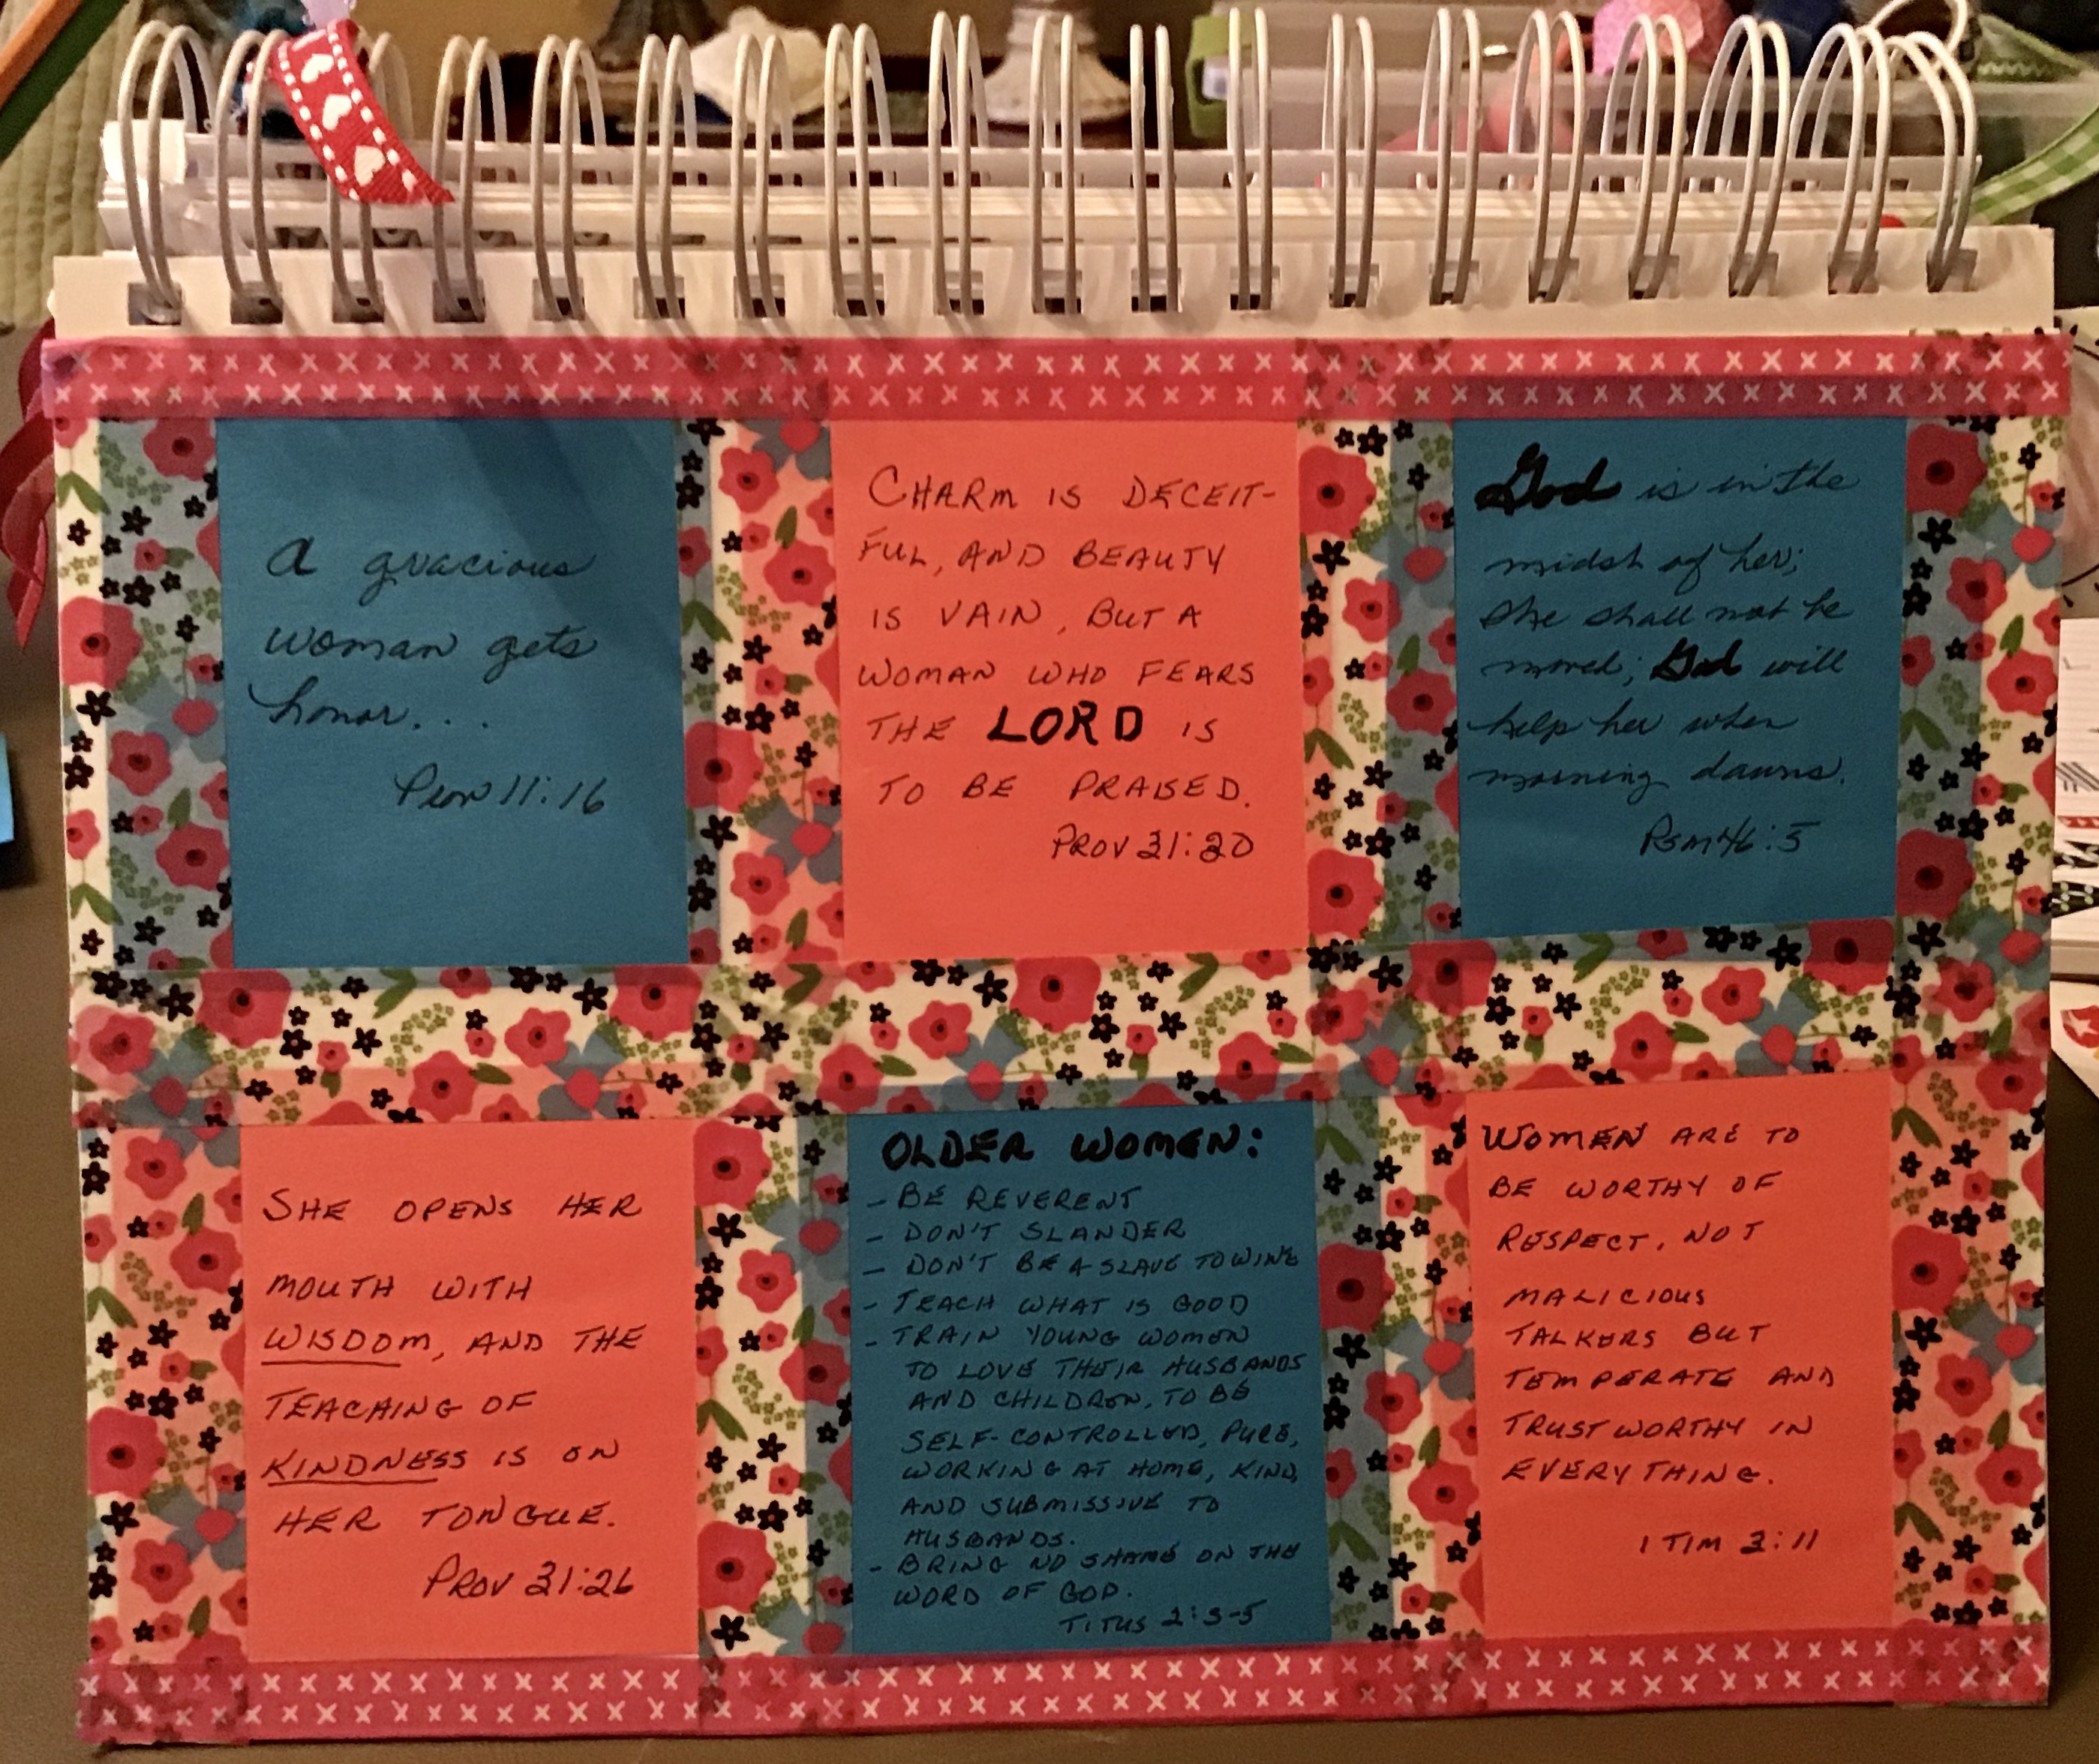 A gracious
woman gets
honor. . .
Prov 11:16
CHARM IS DECEIT-
FUL, AND BEAUTY
IS VAIN, BUT A
WOMAN WHO FEARS
THE LORD IS
TO BE PRAISED.
PROV 31:30
God is in the
midst of her;
she shall not be
moved; God will
help her when
morning dawns.
PSM 46:5
SHE OPENS HER
MOUTH WITH
WISDOM, AND THE
TEACHING OF
KINDNESS IS ON
HER TONGUE.
PROV 31:26
OLDER WOMEN:
- BE REVERENT
- DON'T SLANDER
- DON'T BE A SLAVE TO WINE
- TEACH WHAT IS GOOD
- TRAIN YOUNG WOMEN
TO LOVE THEIR HUSBANDS
AND CHILDREN, TO BE
SELF-CONTROLLED, PURE,
WORKING AT HOME, KIND,
AND SUBMISSIVE TO
HUSBANDS.
- BRING NO SHAME ON THE
WORD OF GOD.
TITUS 2:3-5
WOMEN ARE TO
BE WORTHY OF
RESPECT, NOT
MALICIOUS
TALKERS BUT
TEMPERATE AND
TRUSTWORTHY IN
EVERYTHING.
1 TIM 3:11